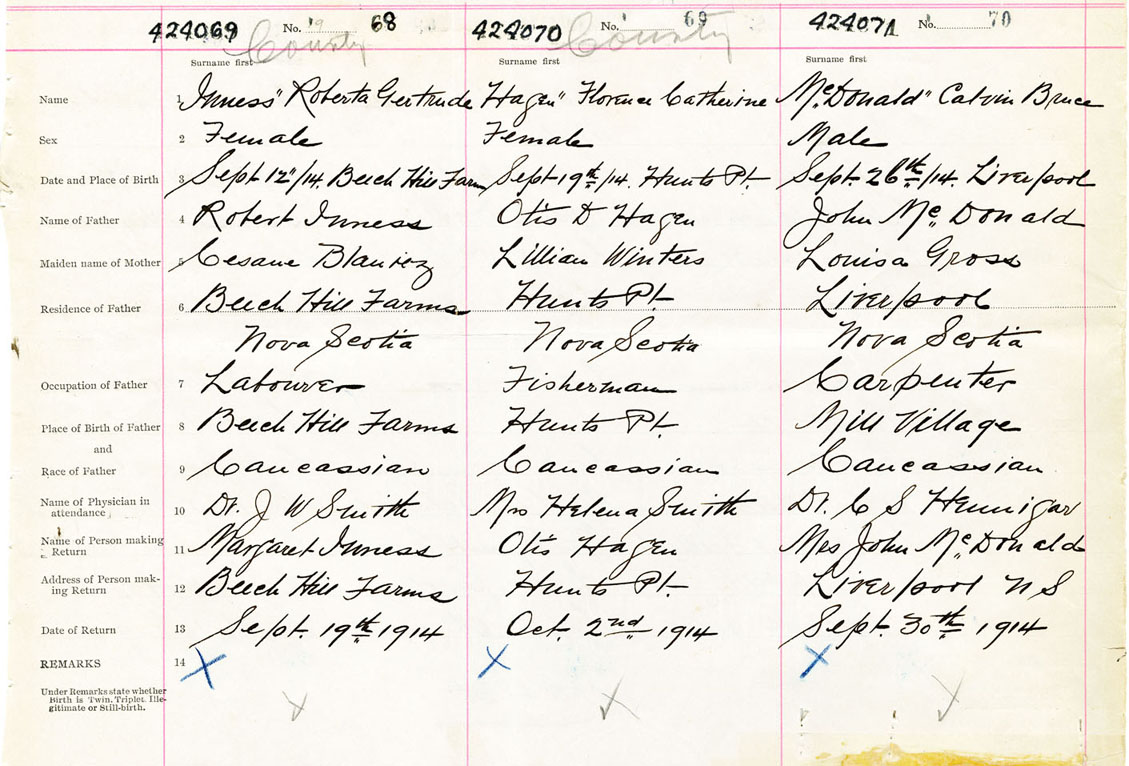 424069 No. 68 424070 No. 69 424071 No. 70
County County
Surname first Surname first Surname first
Name 1 Inness" Roberta Gertrude Hagen" Florence Catherine McDonald" Calvin Bruce
Sex 2 Female Female Male
Date and Place of Birth 3 Sept 12"/14. Beech Hill Farm Sept 19th/14. Hunts Pt. Sept. 26th/14. Liverpool
Name of Father 4 Robert Inness Otis D Hagen John McDonald
Maiden name of Mother 5 Lillian Winters Louisa Gross
Residence of Father 6 Beech Hill Farms Hunts Pt. Liverpool
Nova Scotia Nova Scotia Nova Scotia
Occupation of Father 7 Labourer Fisherman Carpenter
Place of Birth of Father 8 Beech Hill Farms Hunts Pt. Mill Village
and
Race of Father 9 Caucassian Caucassian Caucassian
Name of Physician in
attendance 10 Dr. J W Smith Mrs Helena Smith Dr. C S Hennigar
Name of Person making
Return 11 Margaret Inness Otis Hagen Mrs John McDonald
Address of Person mak-
ing Return 12 Beech Hill Farms Hunts Pt. Liverpool N S
Date of Return 13 Sept. 19th 1914 Oct. 2nd 1914 Sept. 30th 1914
REMARKS 14 X X X
Under Remarks state whether
Birth is Twin, Triplet, Ille-
gitimate or Still-birth.